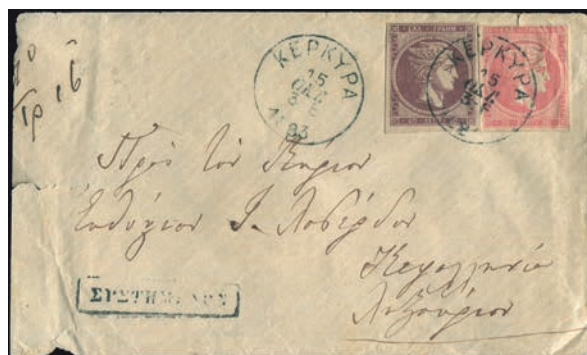 ΚΕΡΚΥΡΑ
15
ΟΚΤ
83
ΚΕΡΚΥΡΑ
15
Πρὸς τὸν Κύριον
Εὐθύμιον Ι. Λοβέρδον
Κεφαλληνία
Ληξούριον
ΣΥΣΤΗΜΕΝΟΣ